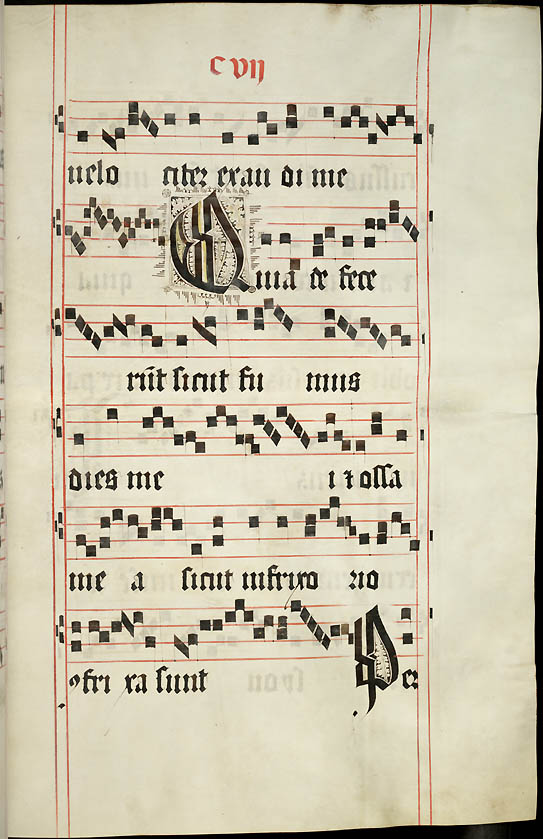 cvij
uelo citer exau di me
Quia de fece
rũt sicut fu mus
dies me i ⁊ ossa
me a sicut in frixo rio
ꝯfri xa sunt Per